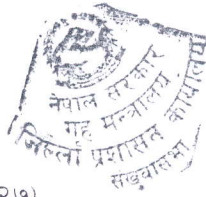 नेपाल सरकार
गृह मन्त्रालय
जिल्ला प्रशासन कार्यालय
सङ्खुवासभा